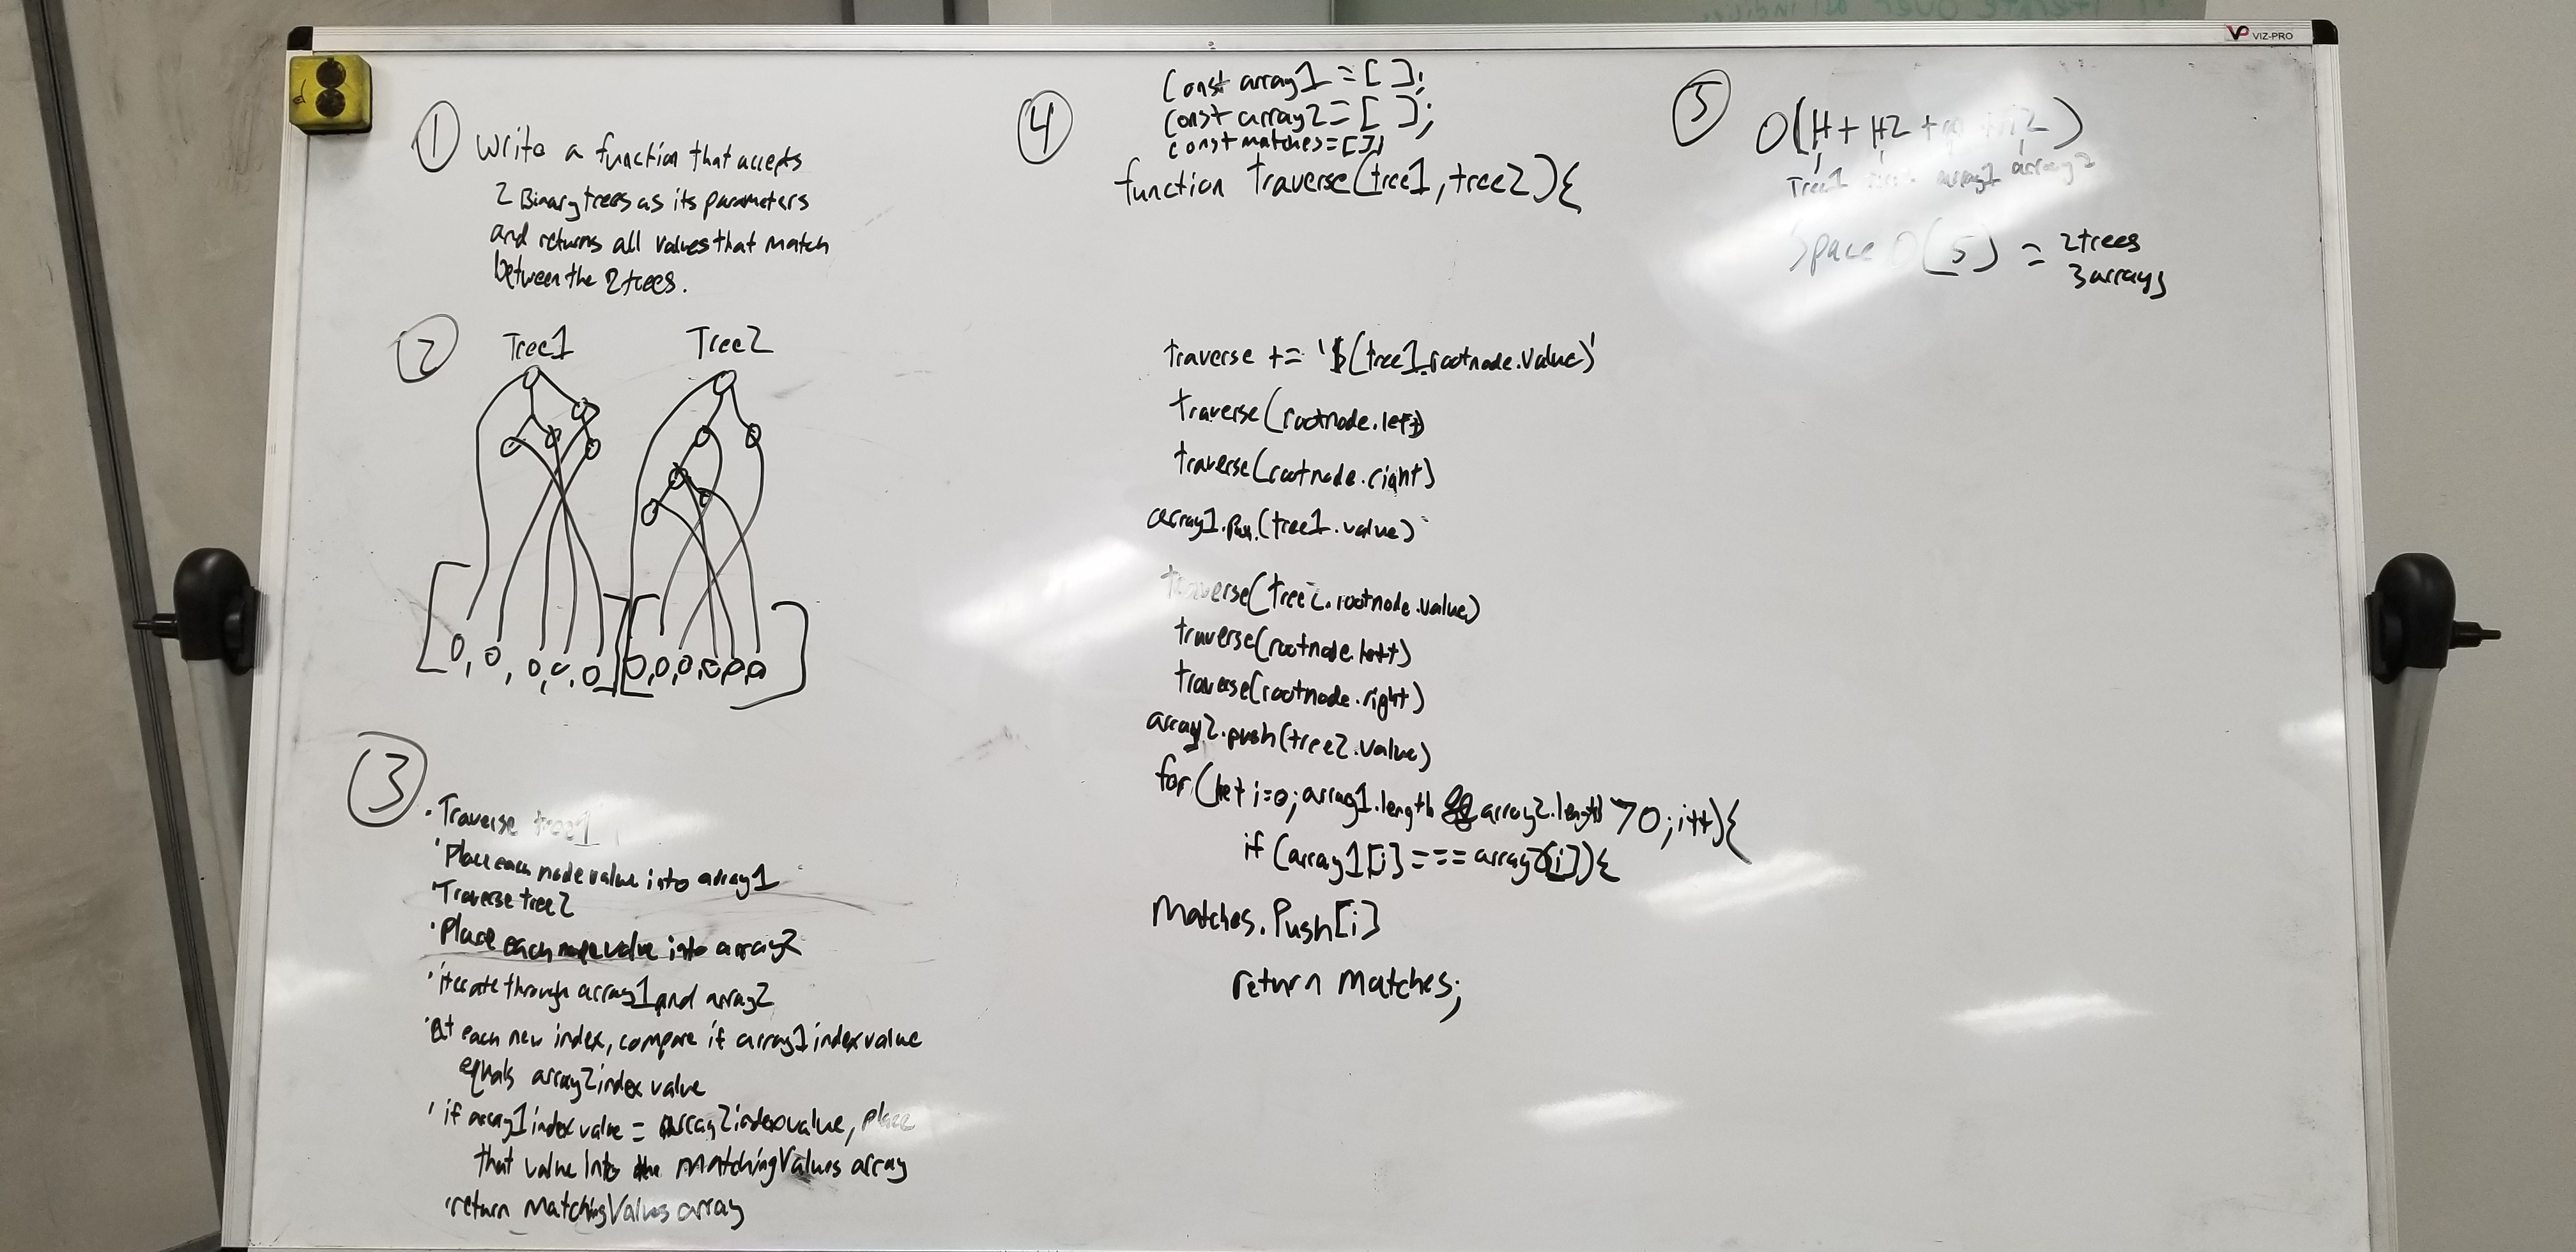 VP VIZ-PRO
1
Write a function that accepts
2 Binary trees as its parameters
and returns all values that match
between the 2 trees.
2
Tree1 Tree2
[0, 0, 0, 0, 0] [0,0,0,0,0,0]
3
· Traverse tree1
· Place each node value into array1
· Traverse tree2
· Place each node value into array2
· iterate through array1 and array2
· at each new index, compare if array1 index value
equals array2 index value
· if array1 index value = array2 index value, place
that value into the matchingValues array
· return matchingValues array
4
const array1 = [ ];
const array2 = [ ];
const matches = [ ];
function traverse(tree1, tree2){
traverse += '$(tree1.rootnode.value)'
traverse(rootnode.left)
traverse(rootnode.right)
array1.(tree1.value)
traverse(rootnode.value)
traverse(rootnode.left)
traverse(rootnode.right)
array2.push(tree2.value)
for (let i=0; array1.length && array2.length >0; i++){
if (array1[i] === array2[i]){
Matches.Push[i]
return Matches;
5
O(H + H2 +
Tree1 array1 array2
Space O(5) = 2 trees
3 arrays